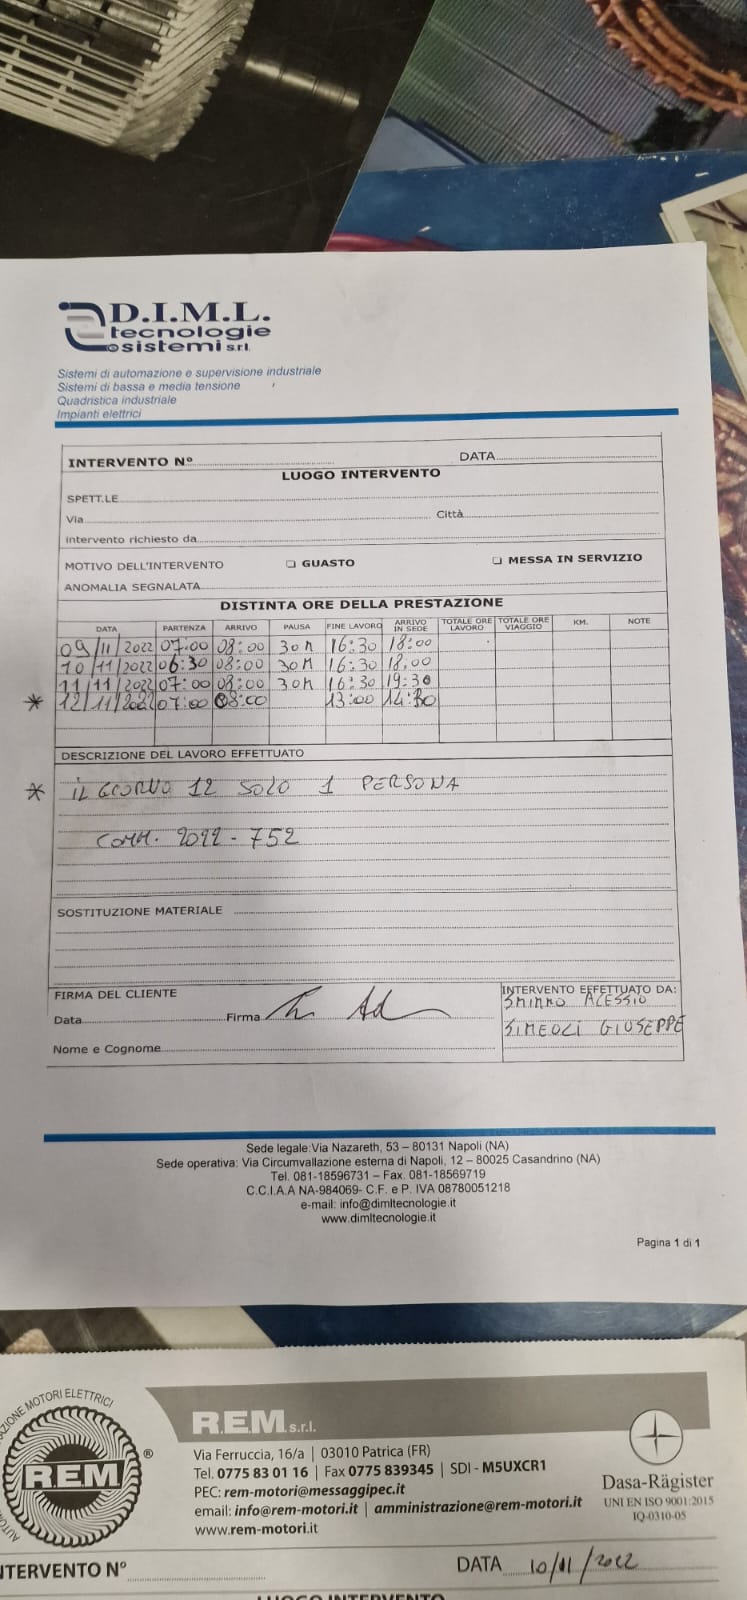 D.I.M.L.
tecnologie
e sistemi s.r.l.
Sistemi di automazione e supervisione industriale
Sistemi di bassa e media tensione
Quadristica industriale
Impianti elettrici
INTERVENTO N° DATA
LUOGO INTERVENTO
SPETT.LE
Via Città
Intervento richiesto da
MOTIVO DELL'INTERVENTO ❑ GUASTO ❑ MESSA IN SERVIZIO
ANOMALIA SEGNALATA
DISTINTA ORE DELLA PRESTAZIONE
DATA PARTENZA ARRIVO PAUSA FINE LAVORO ARRIVO IN SEDE TOTALE ORE LAVORO TOTALE ORE VIAGGIO KM. NOTE
09/11/2022 07:00 08:00 30M 16:30 18:00
10/11/2022 06:30 08:00 30M 16:30 18:00
11/11/2022 07:00 08:00 30M 16:30 19:30
* 12/11/2022 07:00 08:00 13:00 14:30
DESCRIZIONE DEL LAVORO EFFETTUATO
* IL GIORNO 12 SOLO 1 PERSONA
COMM. 2022 - 752
SOSTITUZIONE MATERIALE
FIRMA DEL CLIENTE
Data Firma
Nome e Cognome
INTERVENTO EFFETTUATO DA:
ALESSIO
SIMEOLI GIUSEPPE
Sede legale:Via Nazareth, 53 – 80131 Napoli (NA)
Sede operativa: Via Circumvallazione esterna di Napoli, 12 – 80025 Casandrino (NA)
Tel. 081-18596731 – Fax. 081-18569719
C.C.I.A.A NA-984069- C.F. e P. IVA 08780051218
e-mail: info@dimltecnologie.it
www.dimltecnologie.it
Pagina 1 di 1
MOTORI ELETTRICI
REM
®
R.E.M s.r.l.
Via Ferruccia, 16/a | 03010 Patrica (FR)
Tel. 0775 83 01 16 | Fax 0775 839345 | SDI - M5UXCR1
PEC: rem-motori@messaggipec.it
email: info@rem-motori.it | amministrazione@rem-motori.it
www.rem-motori.it
Dasa-Rägister
UNI EN ISO 9001:2015
IQ-0310-05
NTERVENTO N° DATA 10/11/2022
LUOGO INTERVENTO